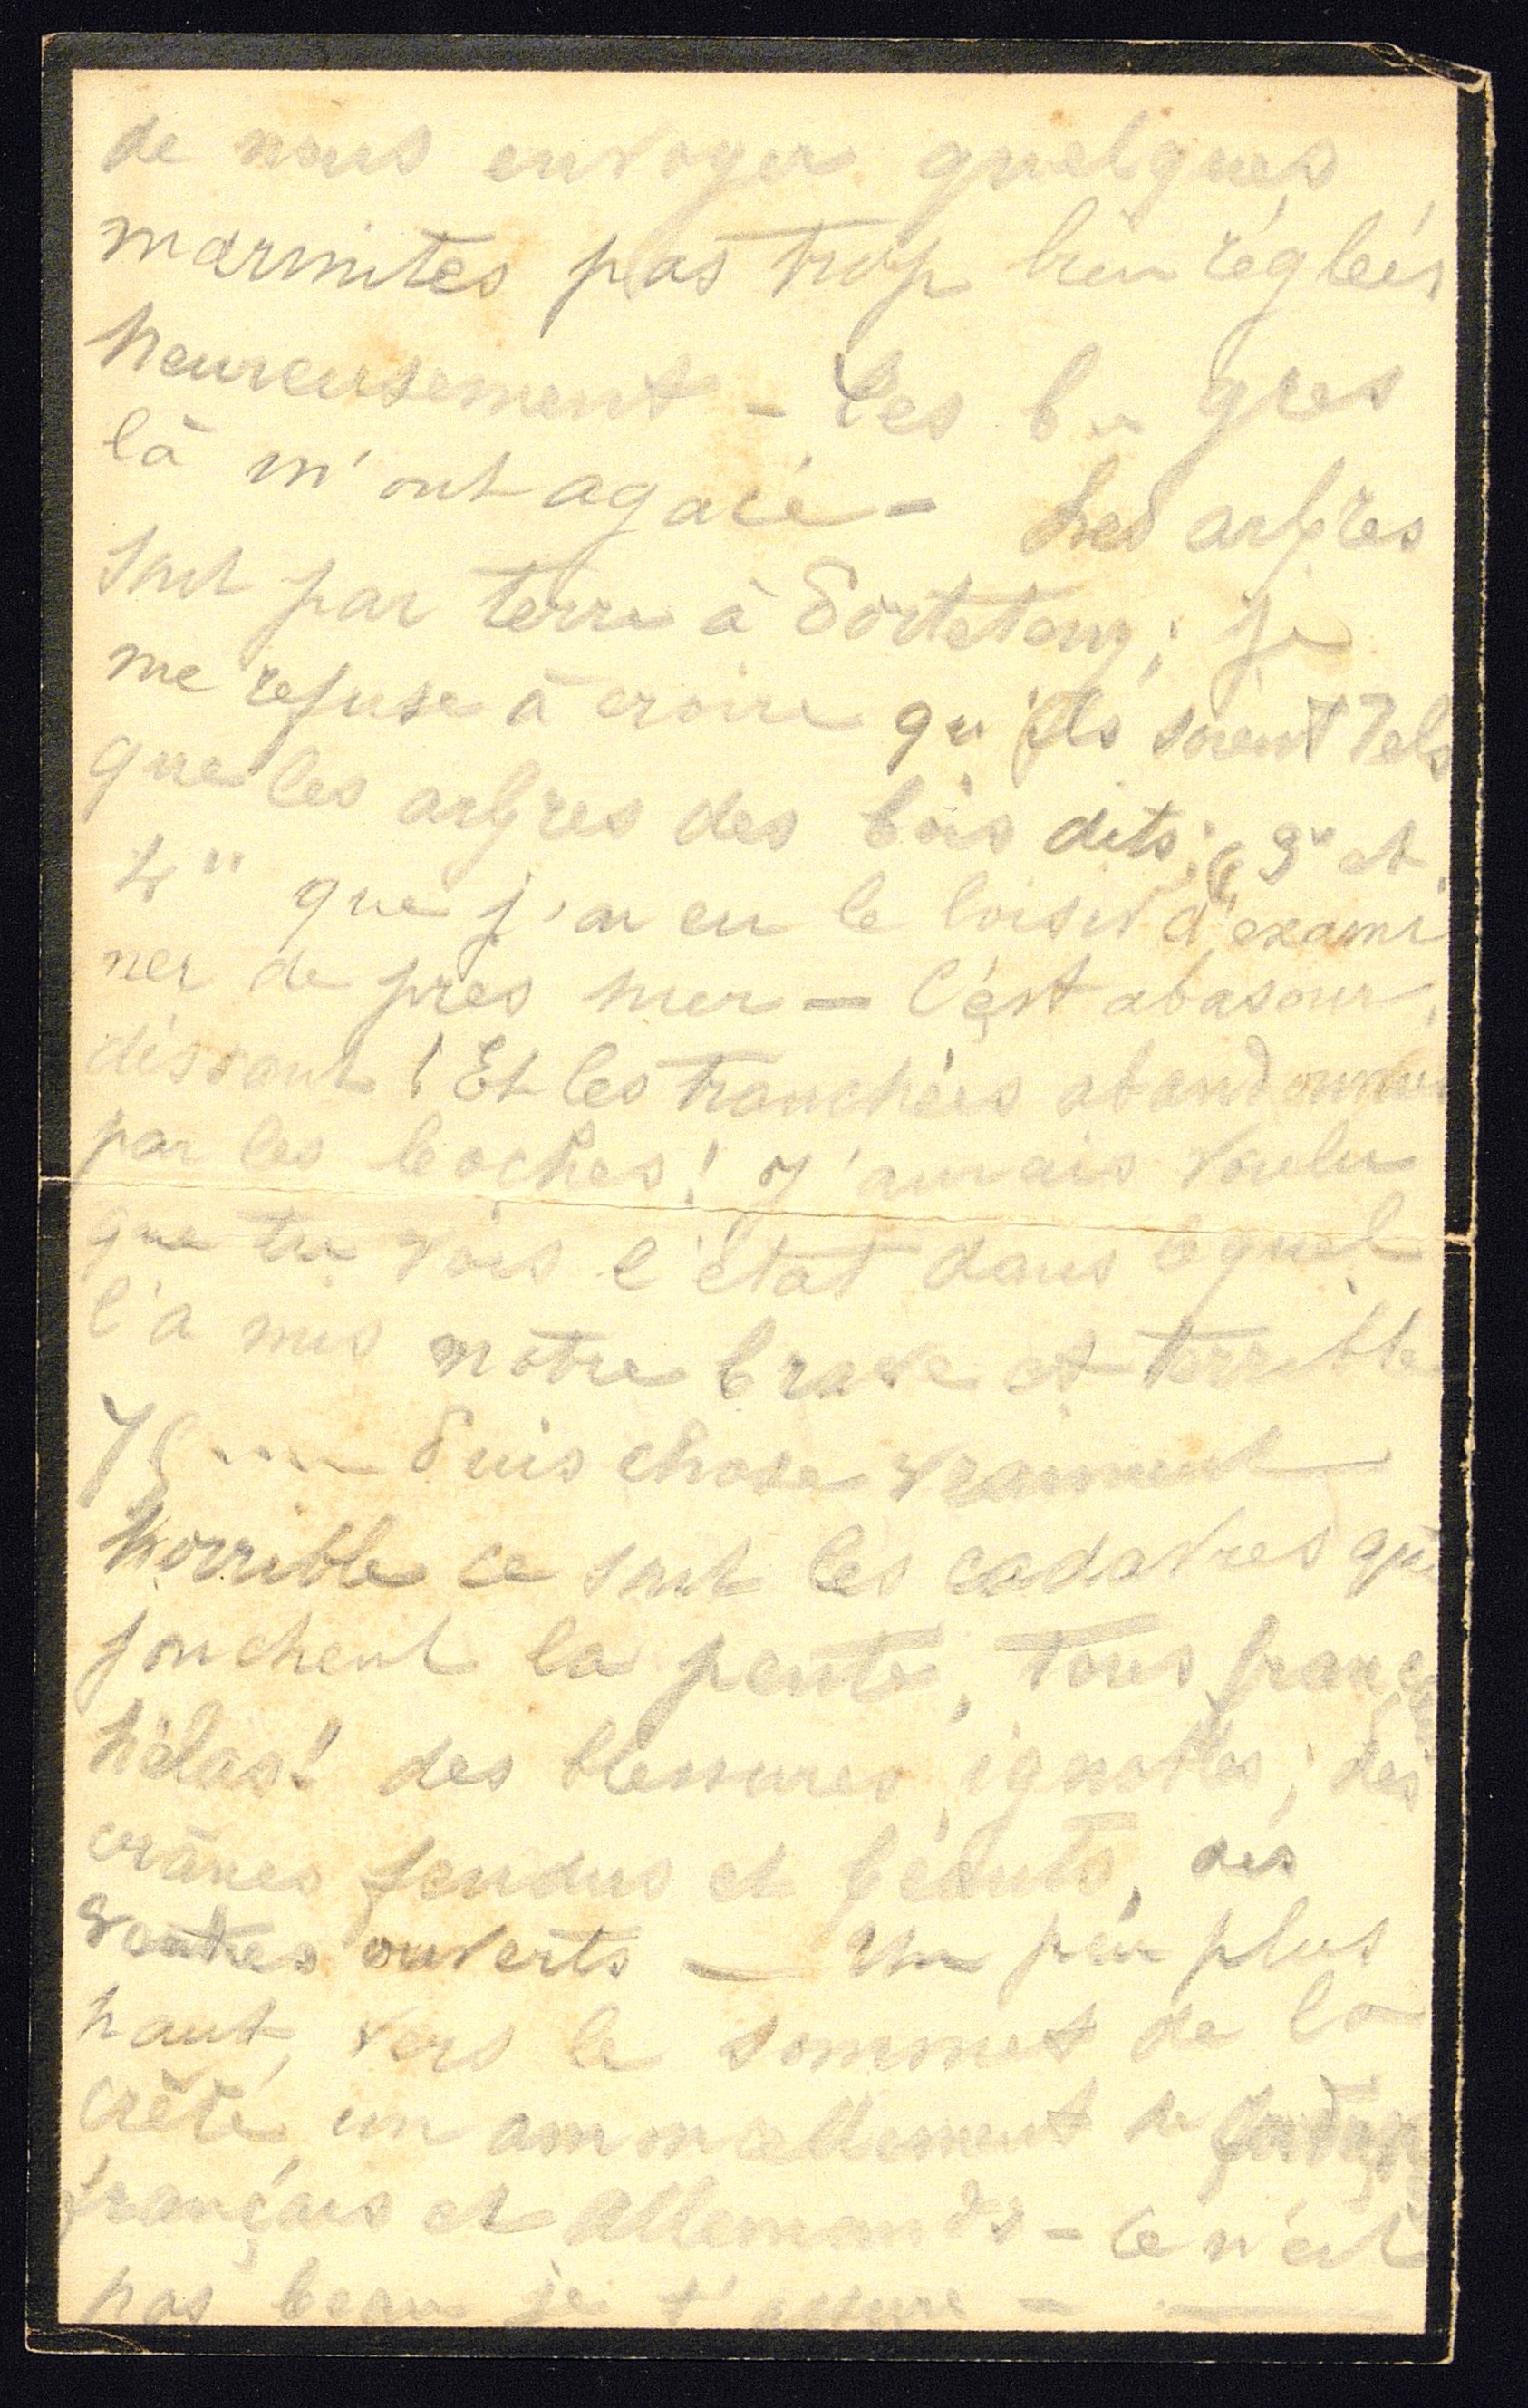 de nous envoyer quelques
marmites pas trop bien réglées
heureusement – Ces b... gres
là m'ont agacé – Les arbres
sont par terre à ; je
me refuse à croire qu'ils soient tels
que les arbres des bois dits : 3" et
4" que j'ai eu le loisir d'exami
ner de près hier – C'est abasour.
dissant ! Et les tranchées abandonnées
par les boches ! J'aurais voulu
que tu vois l'état dans lequel
l'a mis notre brave et terrible
75 .... Puis chose vraiment
horrible ce sont les cadavres qui
jonchent la pente, tous français
hélas ! des blessures ignobles ; des
crânes fendus et béants, des
ventres ouverts — Un peu plus
haut, vers le sommet de la
crête, un ammcellement de
français et Allemands – Ce n'est
pas beau je t'assure –